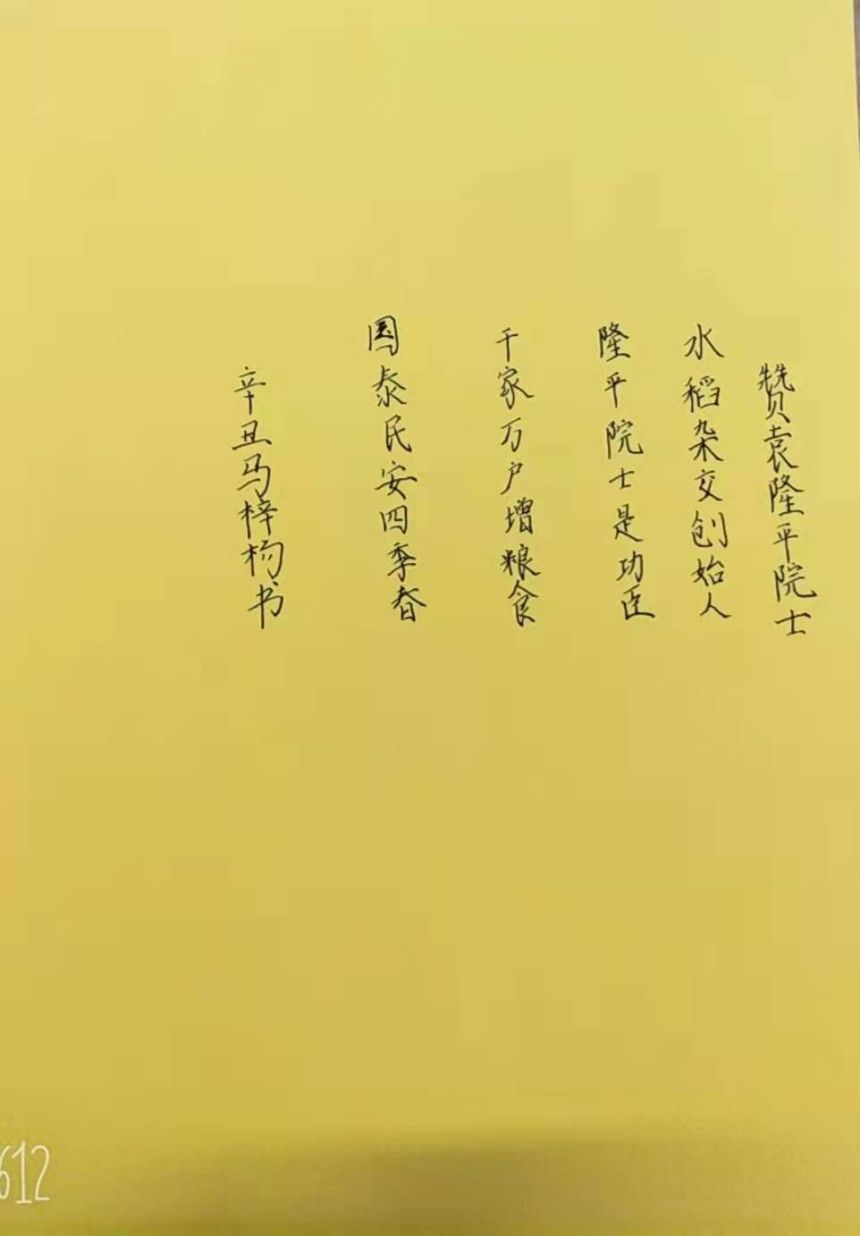 赞袁隆平院士
水稻杂交创始人
隆平院士是功臣
千家万户增粮食
国泰民安四季春
辛丑马梓杓书
612